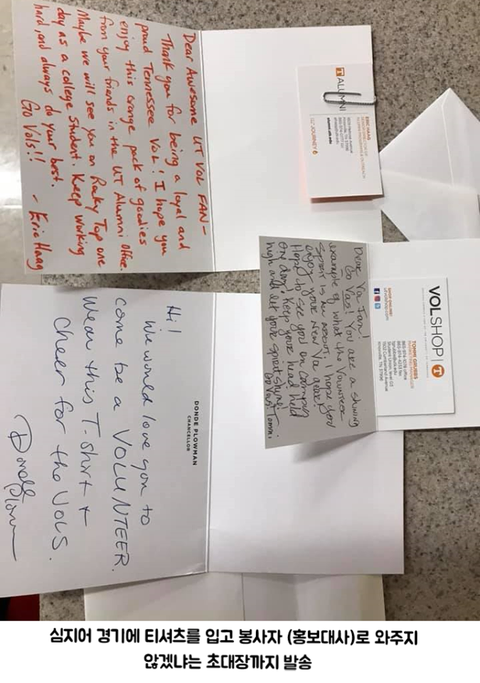 Dear Awesome UT VOL FAN-
Thank you for being a loyal and
proud Tennessee Vol! I hope you
enjoy this orange pack of goodies
from your friends in the UT Alumni office.
Maybe we will see you on Rocky Top one
day as a college student. Keep working
hard, and always do your best.
Go Vols!!
- Eric Haag
ALUMNI
ERIC HAAG
alumni.utk.edu
JOURNEY
Go Vols! You are a shining
example of what the Volunteer
Spirit is about. I hope you
enjoy your new Va gear!
Hope to see you on campus
one day! Keep your head held
high and let your great shine!
Go Vols! Tommi
VOLSHOP T
TOMMI GRUBBS
Knoxville, TN 37996
DONDE PLOWMAN
CHANCELLOR
Hi!
We would love you to
come be a VOLUNTEER.
Wear this T-shirt +
Cheer for the VOLS.
Donde Plowman
심지어 경기에 티셔츠를 입고 봉사자 (홍보대사)로 와주지
않겠냐는 초대장까지 발송